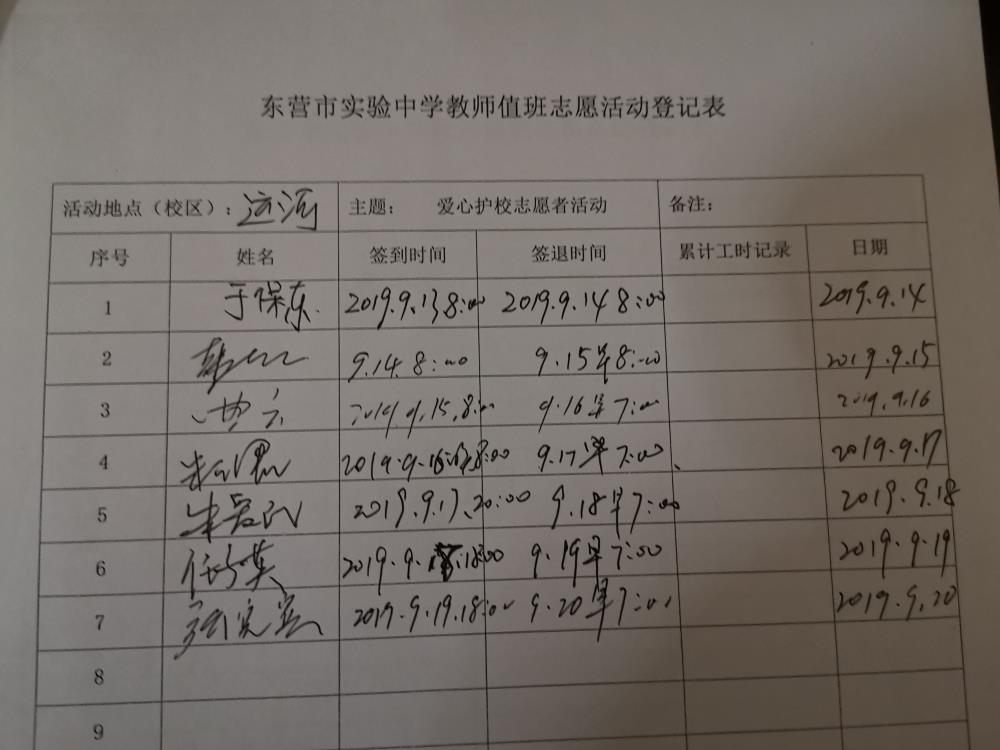 东营市实验中学教师值班志愿活动登记表
活动地点（校区）：运河 主题： 爱心护校志愿者活动 备注：
序号 姓名 签到时间 签退时间 累计工时记录 日期
1 于保东 2019.9.13 8:00 2019.9.14 8:00 2019.9.14
2 9.14 8:00 9.15早8:00 2019.9.15
3 2019.9.15.8:00 9.16早7:00 2019.9.16
4 2019.9.16 8:00 9.17早7:00、 2019.9.17
5 2019.9.17.20:00 9.18早7:00 2019.9.18
6 2019.9. 18:00 9.19早7:00 2019.9.19
7 2019.9.19.18:00 9.20早7:00 2019.9.20
8
9